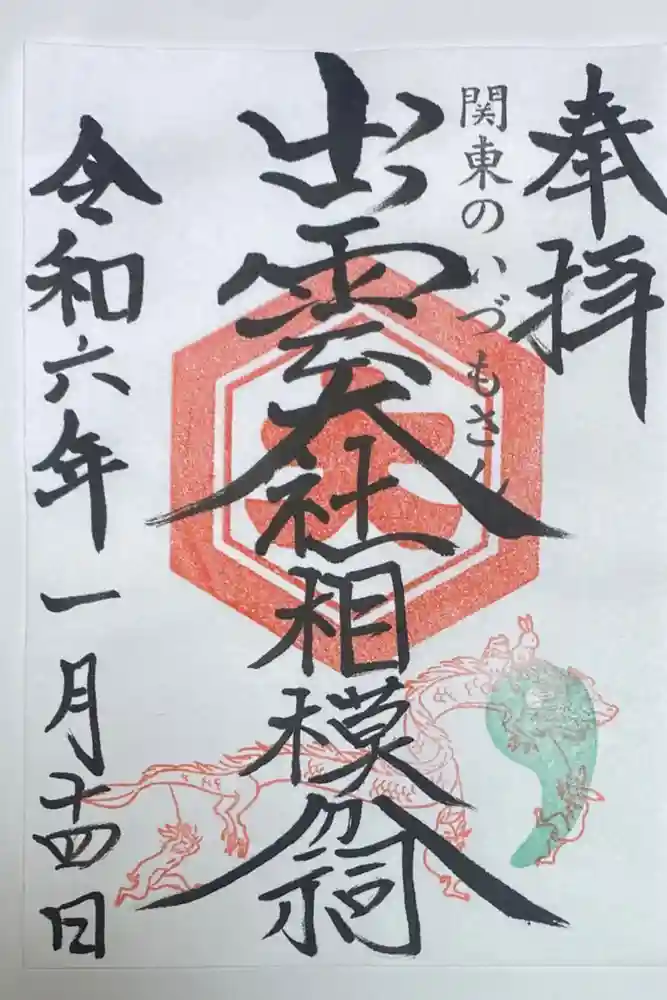 奉拝
関東のいづもさん
出雲大社相模祠
大
令和六年一月十四日